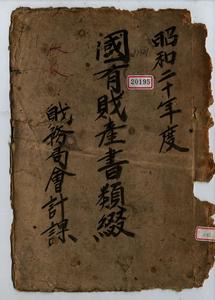 昭和二十年度
國有財產書類綴
財務局會計課
20195